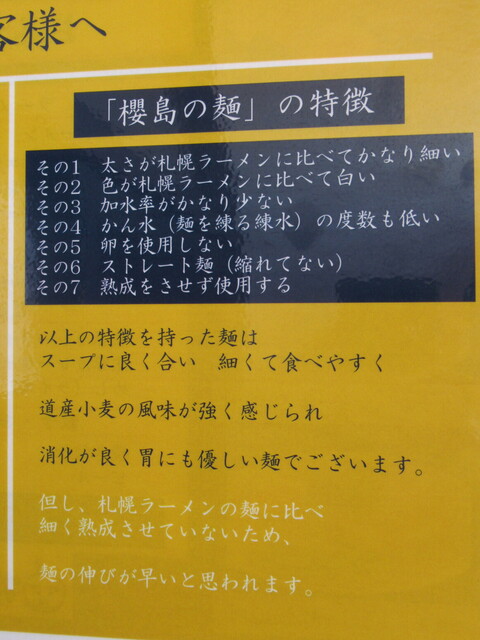 客様へ
「櫻島の麺」の特徴
その1 太さが札幌ラーメンに比べてかなり細い
その2 色が札幌ラーメンに比べて白い
その3 加水率がかなり少ない
その4 かん水（麺を練る練水）の度数も低い
その5 卵を使用しない
その6 ストレート麺（縮れてない）
その7 熟成をさせず使用する
以上の特徴を持った麺は
スープに良く合い 細くて食べやすく
道産小麦の風味が強く感じられ
消化が良く胃にも優しい麺でございます。
但し、札幌ラーメンの麺に比べ
細く熟成させていないため、
麺の伸びが早いと思われます。